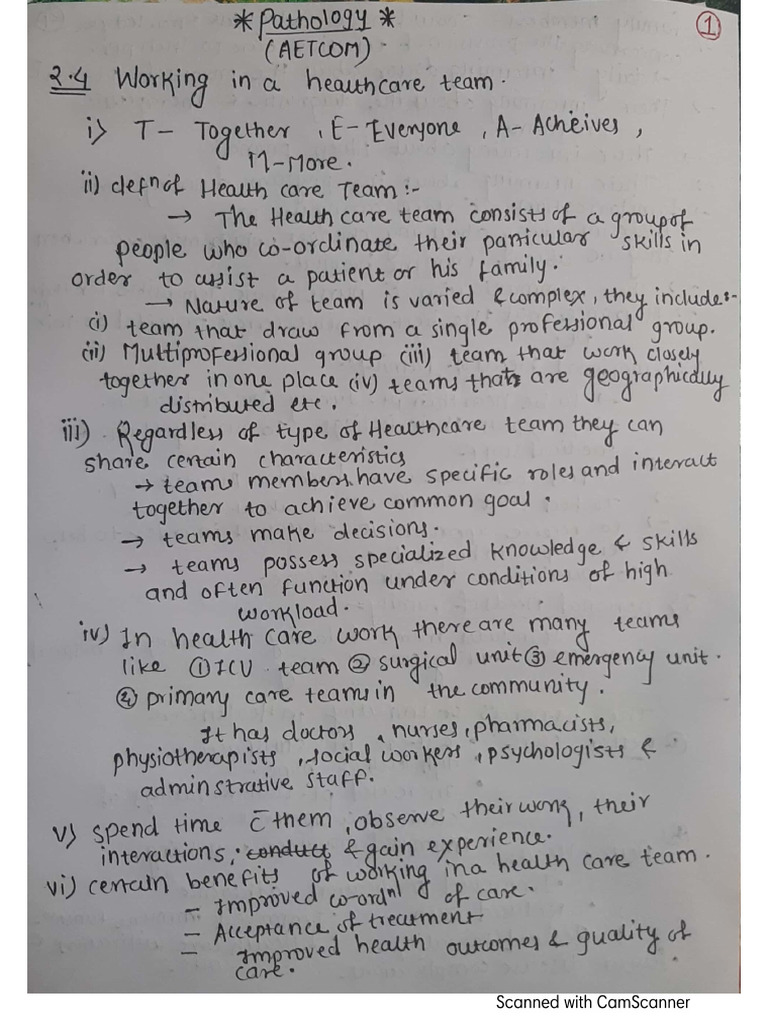 * Pathology *
(AETCOM)
①
2.4 Working in a healthcare team.
i) T- Together, E- Everyone, A- Acheives,
M- More.
ii) defn of Health care Team :-
→ The Health care team consists of a group of
people who co-ordinate their particular skills in
order to assist a patient or his family.
→ Nature of team is varied & complex, they include:-
(i) team that draw from a single professional group.
(ii) Multiprofessional group (iii) team that work closely
together in one place (iv) teams that are geographically
distributed etc.
iii) Regardless of type of Healthcare team they can
share certain characteristics
→ team members have specific roles and interact
together to achieve common goal.
→ teams make decisions.
→ teams possess specialized knowledge & skills
and often function under conditions of high
workload.
iv) In health care work there are many teams
like ① ICU team ② surgical unit ③ emergency unit.
④ primary care teams in the community.
It has doctors, nurses, pharmacists,
physiotherapists, social workers, psychologists &
adminstrative staff.
v) spend time c̄ them, observe their work, their
interactions, conduct & gain experience.
vi) certain benefits of working in a health care team.
- Improved co-ordnl of care.
- Acceptance of treatment
- Improved health outcomes & quality of
care.
Scanned with CamScanner